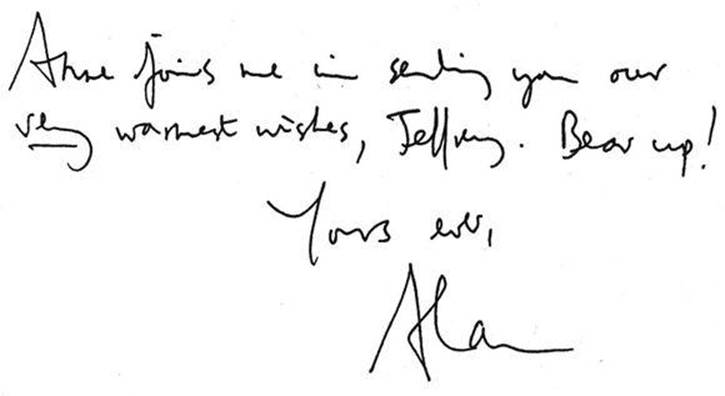 Anne joins me in sending you our
very warmest wishes, Jeffrey. Bear up!
Yours ever,
Alan